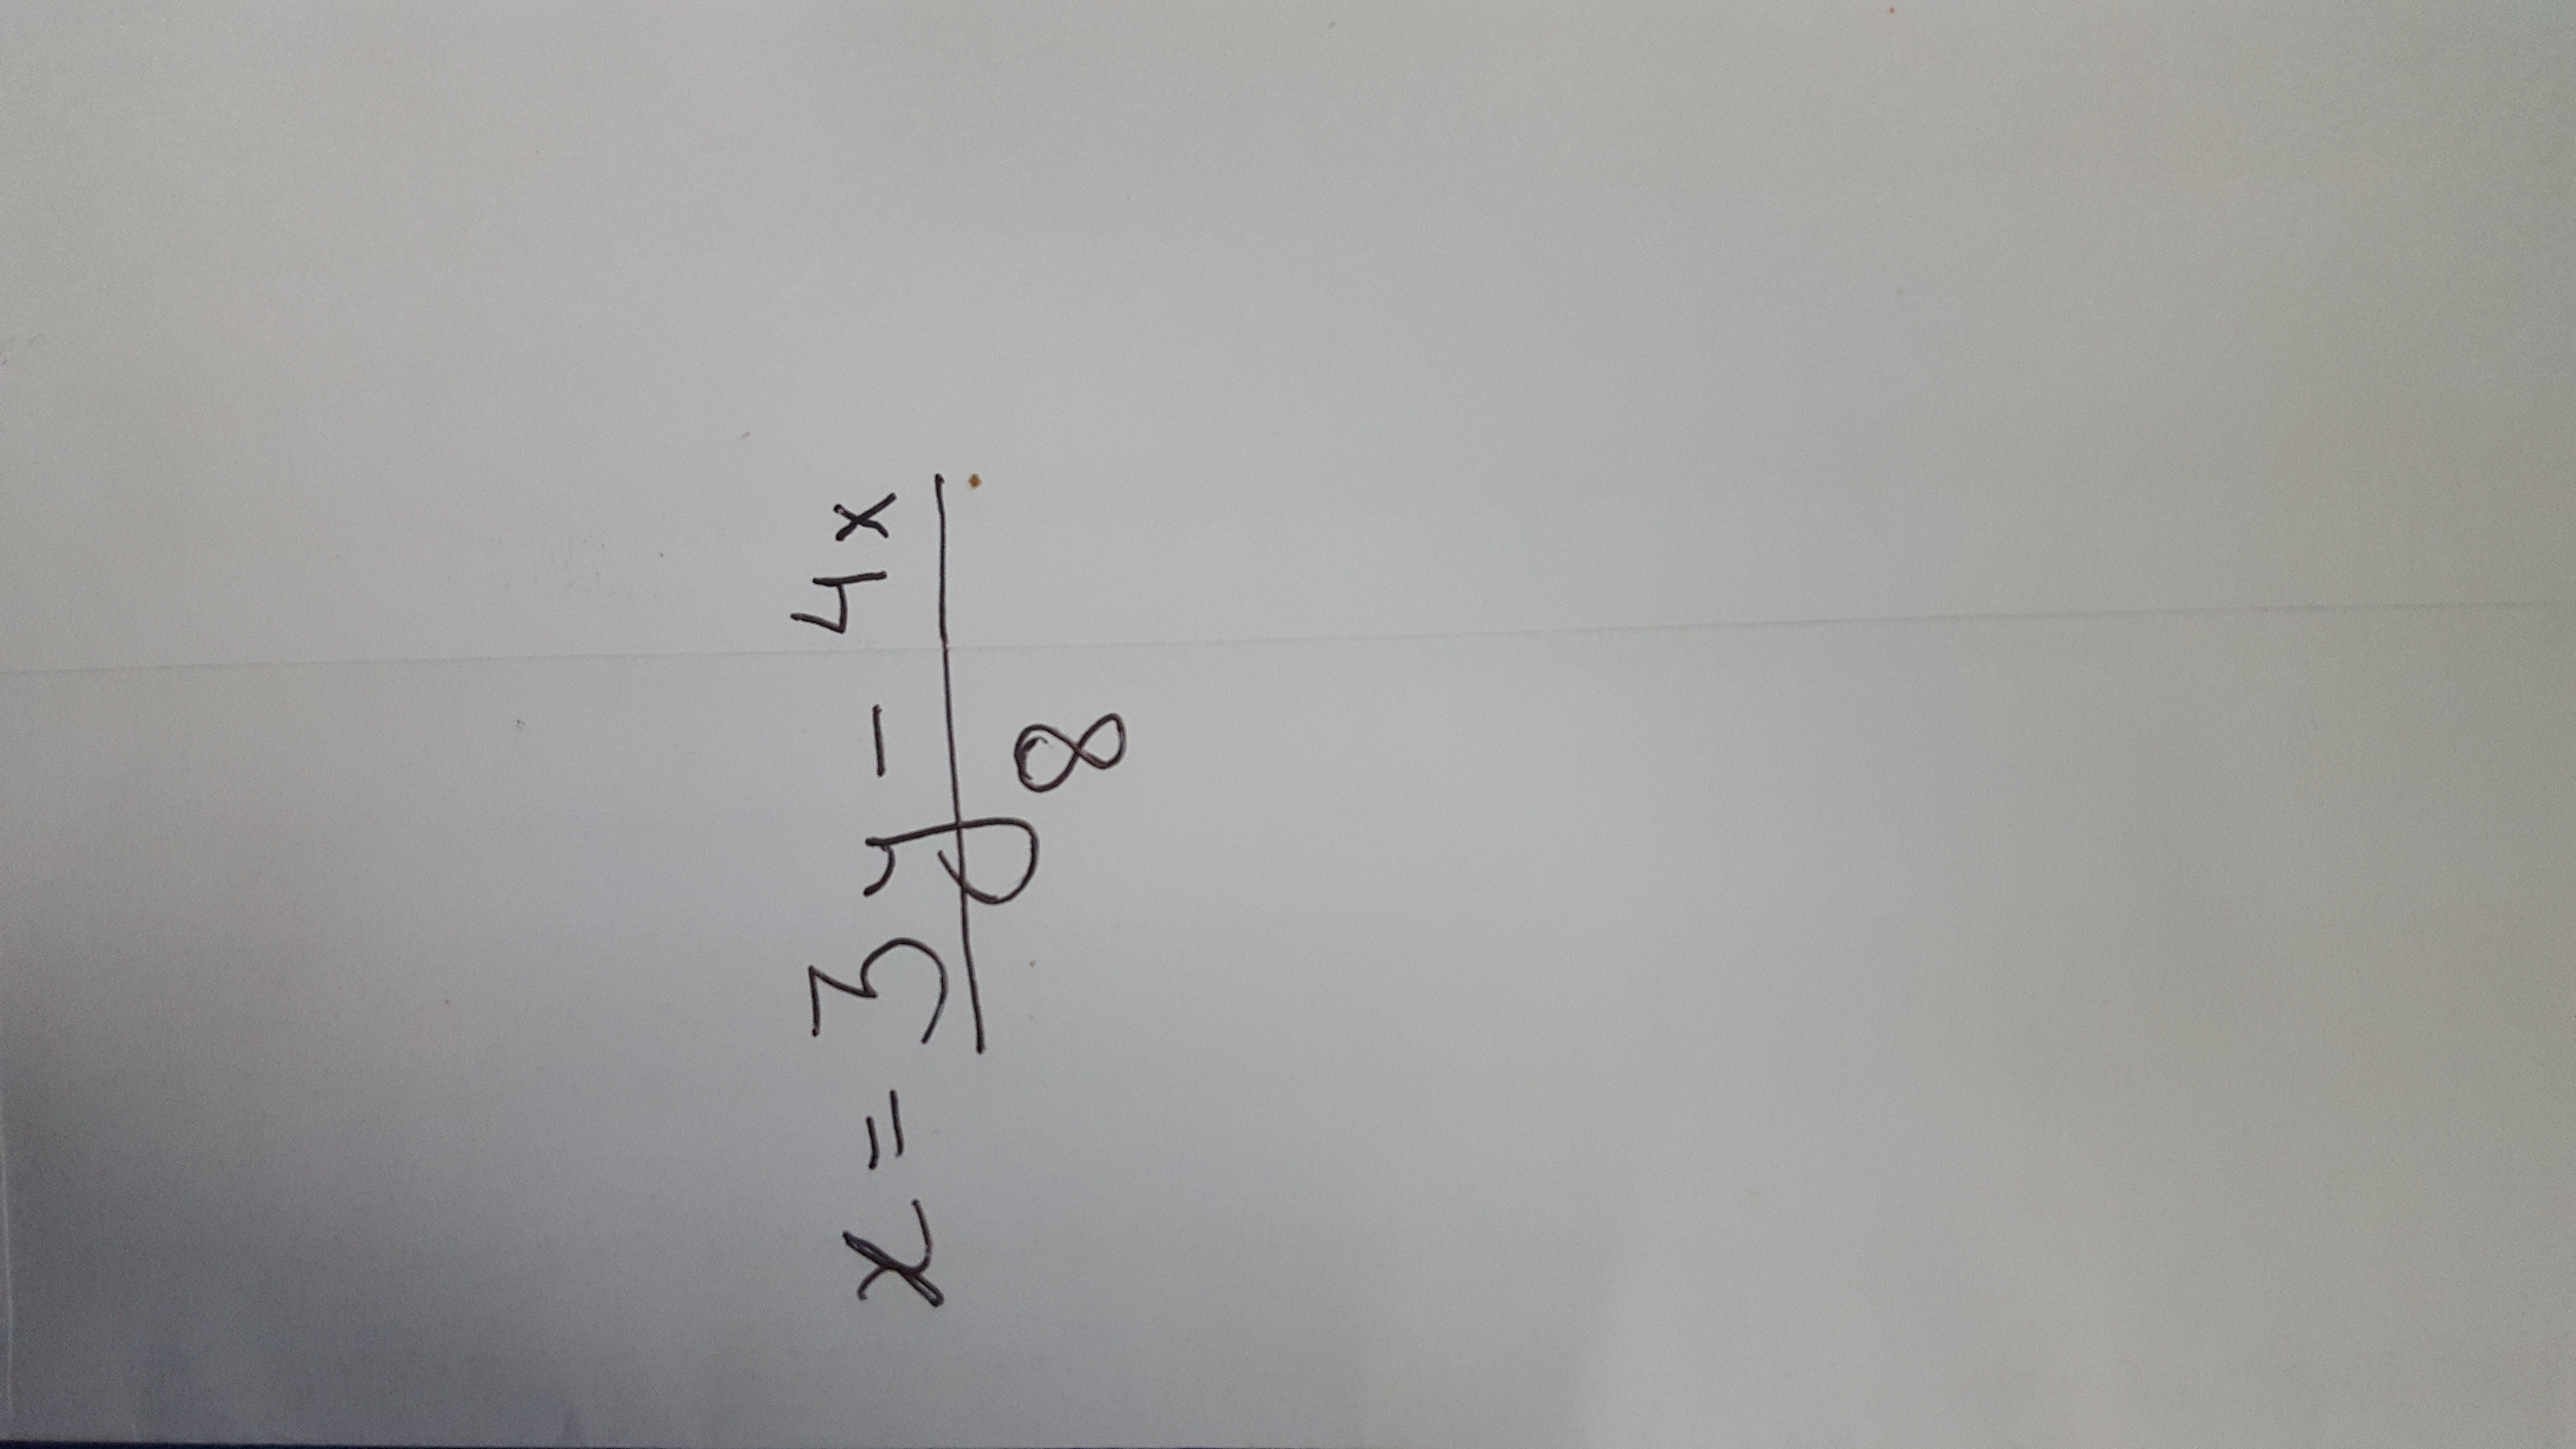 x = 3y - 4x
8